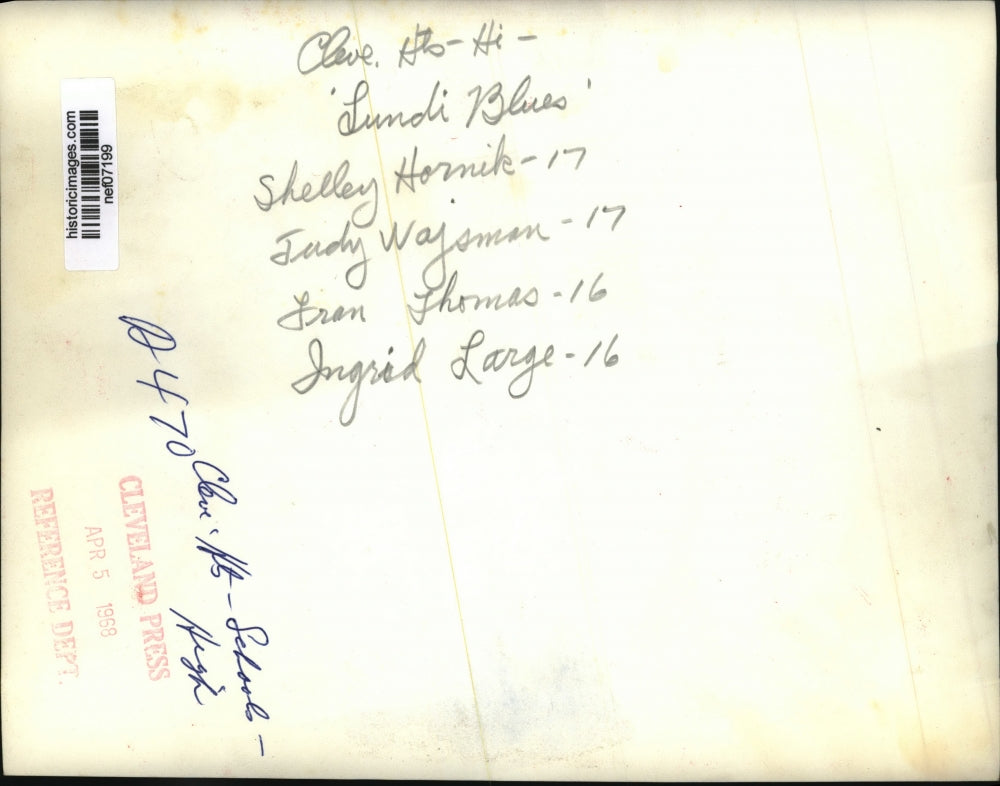 Cleve. Hts - Hi -
'Lundi Blues'
Shelley Hornik - 17
Judy Wajsman - 17
Fran Thomas - 16
Ingrid Large - 16
historicimages.com
nef07199
A 470
Cleve. Hts - Schools -
High
CLEVELAND PRESS
APR 5 1968
REFERENCE DEPT.